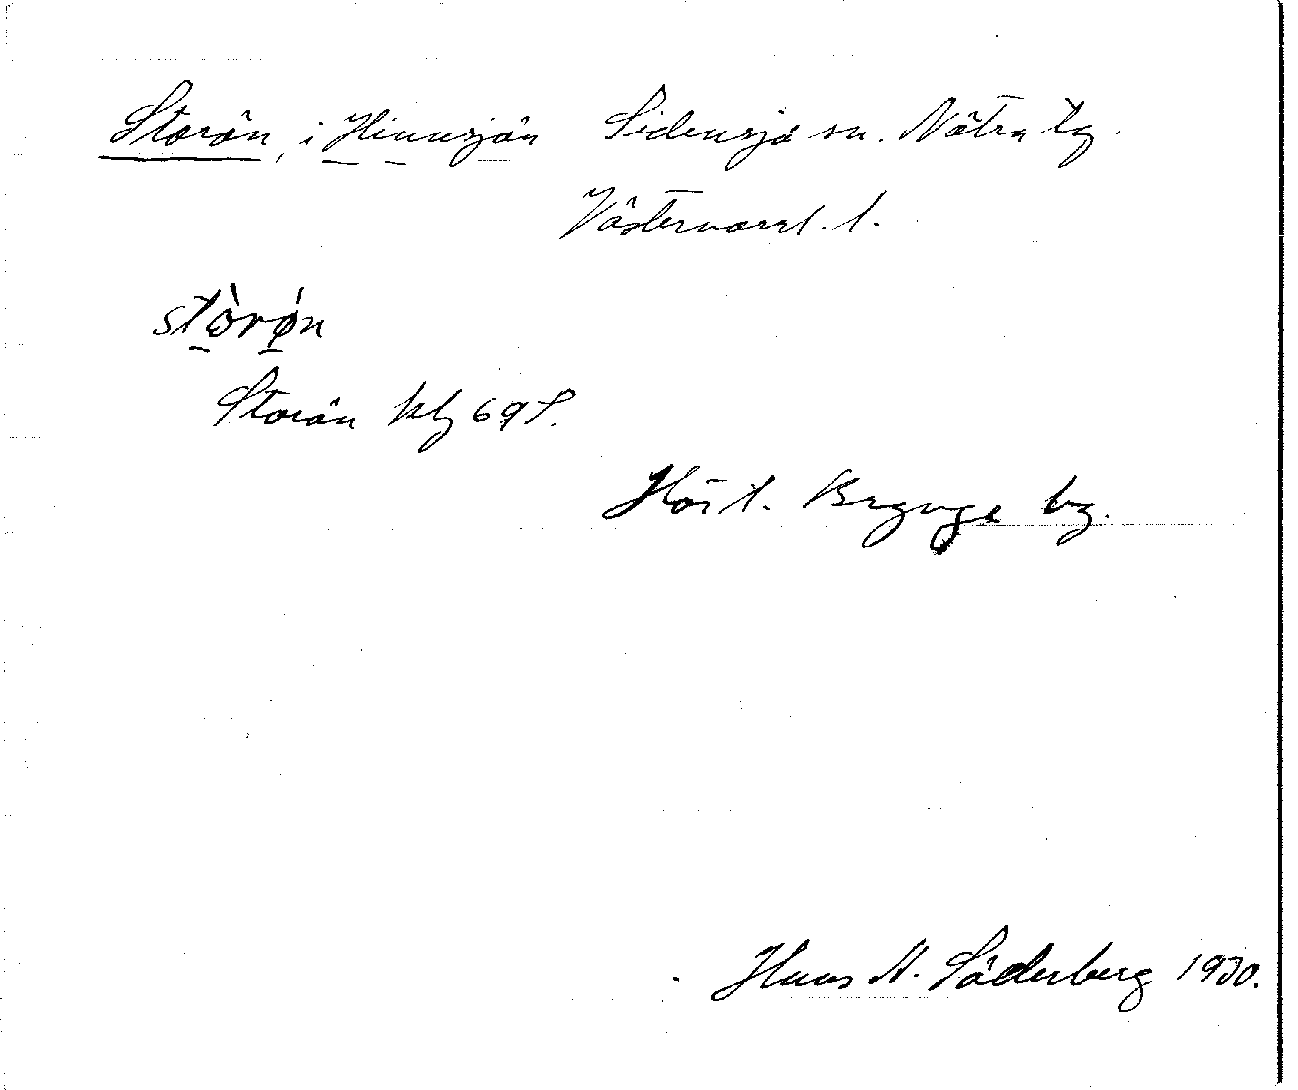 Storön, i Hinnsjön Sidensjö sn. Nätra tg
Västernorrl. l.
stòrǿn
Storön kbl 69 S.
Hör t. Brynge by.
Hans N. Söderberg 1930.